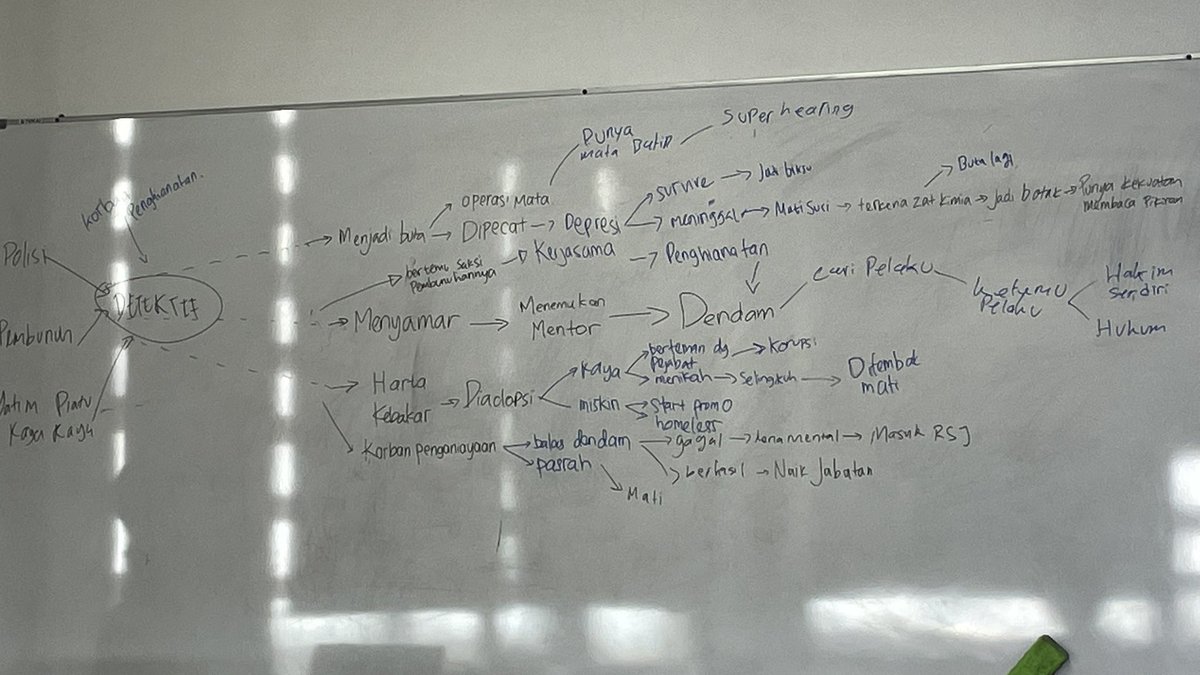 Super hearing
Punya
mata Batin
Korban
Pengkhianatan.
Polisi
Pembunuh
Yatim Piatu
Kaya Raya
DETEKTIF
Menjadi buta
Operasi Mata
Dipecat
Depresi
survive
Jadi biksu
meninggal
Mati Suri
terkena zat kimia
Jadi botak
Buta lagi
Punya kekuatan
membaca Pikiran
bertemu saksi
Pembunuhannya
Kerjasama
Penghianatan
Menyamar
Menemukan
Mentor
Dendam
cari Pelaku
ketemu
Pelaku
Hakim
sendiri
Hukum
Harta
Kebakar
Diadopsi
kaya
berteman dg
Pejabat
Korupsi
menikah
Selingkuh
Ditembak
mati
miskin
Start from 0
homeless
Korban penganiayaan
balas dendam
pasrah
Mati
gagal
kena mental
Masuk RSJ
berhasil
Naik Jabatan